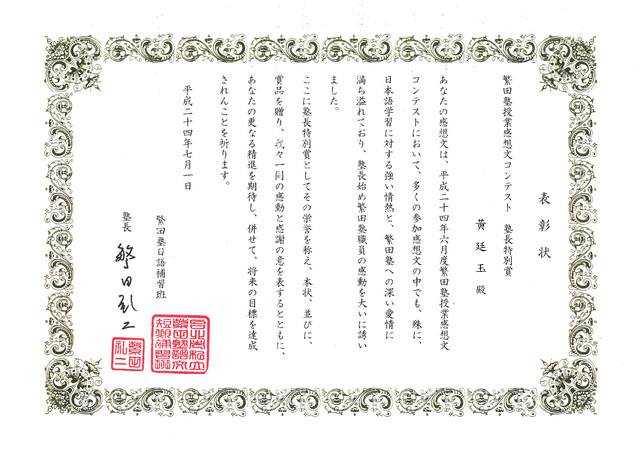 表彰状
繁田塾授業感想文コンテスト　塾長特別賞
黃廷玉 殿
あなたの感想文は、平成二十四年六月度繁田塾授業感想文
コンテストにおいて、多くの参加感想文の中でも、殊に、
日本語学習に対する強い情熱と、繁田塾への深い愛情に
満ち溢れており、塾長始め繁田塾職員の感動を大いに誘い
ました。
ここに塾長特別賞としてその学誉を称え、本状、並びに、
賞品を贈り、我々一同の感動と感謝の意を表するとともに、
あなたの更なる精進を期待し、併せて、将来の目標を達成
されんことを祈ります。
平成二十四年七月一日
繁田塾日語補習班
塾長